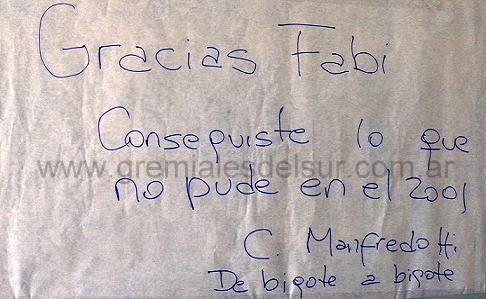 Gracias Fabi
Conseguiste lo que
www.gremialesdelsur.com.ar
no pude en el 2001
C. Manfredotti
De bigote a bigote